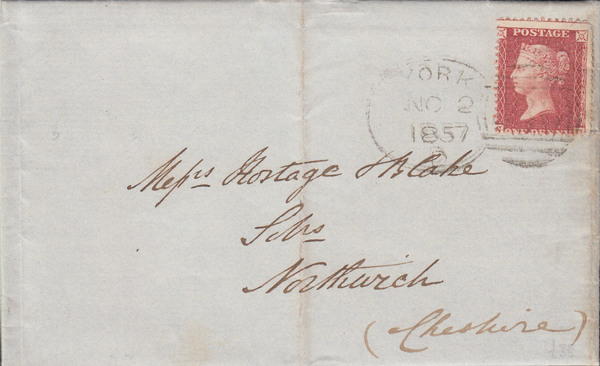 POSTAGE
YORK
NO 2
1857
Messrs Hostage & Blake
Solrs
Northwich
(Cheshire)